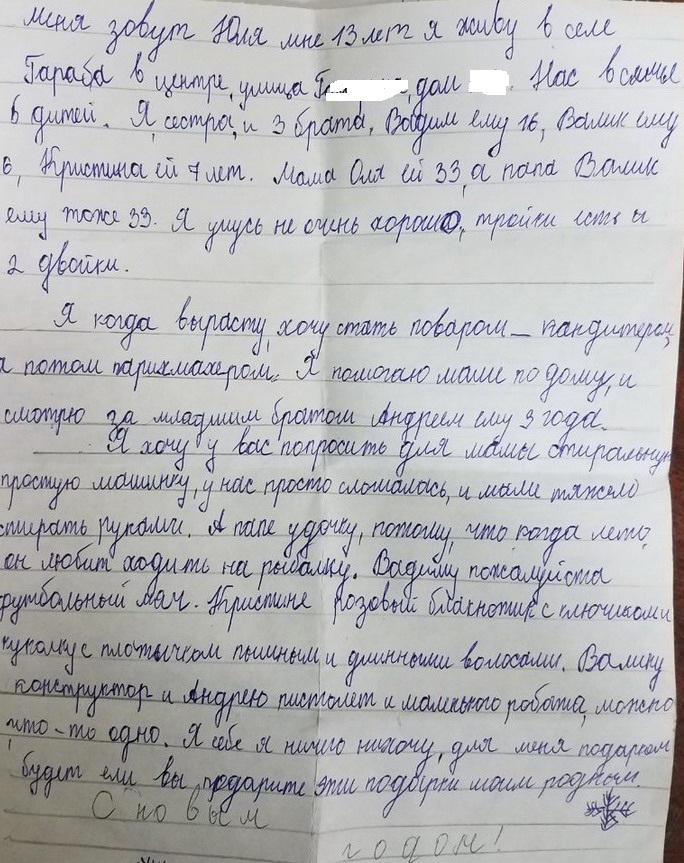 меня зовут Юля мне 13 лет я живу в селе
Гараба в центре, улица Г дом . Нас в семье
6 дитей. Я, сестра, и 3 брата, Вадим ему 16, Валик ему
6, Кристина ей 7 лет. Мама Оля ей 33, а папа Валик
ему тоже 33. Я учусь не очень хорошо, тройки есть и
2 двойки.
Я когда вырасту, хочу стать поваром - кандитером,
а потом парихмахером. Я помогаю маме по дому, и
смотрю за младшим братом Андреем ему 3 года.
Я хочу у вас попросить для мамы стиральную
простую машинку, у нас просто сломалась, и маме тяжело
стирать руками. А папе удочку, потому, что когда лето,
он любит ходить на рыбалку. Вадиму пожалуйста
футбольный мяч. Кристине розовый блакнотик с ключиком и
куколку с плотычком пышным и длинными волосами. Валику
конструктор и Андрею пистолет и маленького робота, можно
что-то одно. Я себе я ничего нихочу, для меня подарком
будет ели вы подарите эти подарки моим родным.
С новым
годом!